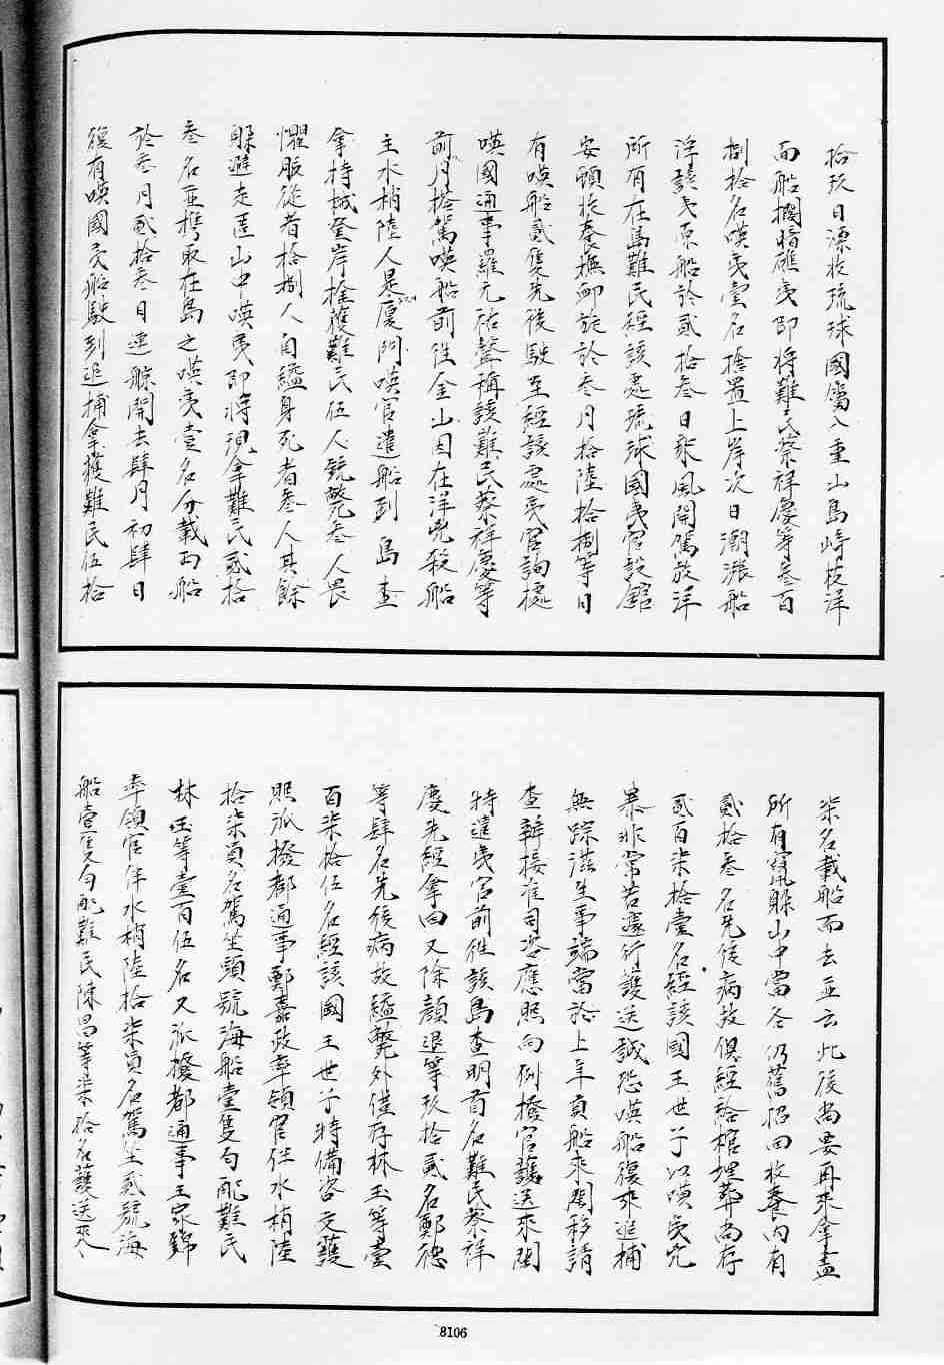 拾玖日漂收琉球國屬八重山島崎枝洋
面船擱暗礁夷卽將難民蔡祥慶等叁百
捌拾名嘆夷壹名捨置上岸次日潮漲船
浮該夷原船於貳拾叁日乘風開駕放洋
所有在島難民經該處琉球國夷官設館
安頓妝養撫卹旋於叁月拾陸拾捌等日
有嘆船貳隻先後駛至經該處夷官詢據
嘆國通事羅元祐聲稱該難民蔡祥慶等
前月搭駕嘆船前往金山因在洋兇殺船
主水梢陸人是廈門嘆官遣船到島查
拿持械登岸拴獲難民伍人銃斃叁人畏
懼服從者拾捌人自縊身死者叁人其餘
躱避走匿山中嘆夷卽將現拿難民貳拾
叁名並携取在島之嘆夷壹名分載兩船
於叁月貳拾叁日連䑸開去肆月初肆日
復有嘆國夷船駛到追捕拿獲難民伍拾
柒名載船而去並云此後尚要再來拿盡
所有竄躱山中當各仍舊招回收養內有
貳拾叁名先後病故俱經給棺埋葬尚存
貳百柒拾壹名經該國王世子以嘆夷兇
暴非常若遽行護送誠恐嘆船復來追捕
無踪滋生事端當於上年貢船來閩移請
查辦接准司咨應照向例撥官護送來閩
特遣夷官前往該島查明首名難民蔡祥
慶先經拿回又除顏退等玖拾貳名鄭德
等肆名先後病故縊斃外僅存林玉等壹
百柒拾伍名經該國王世子特備咨文護
照派撥都通事鄭嘉政率領官伴水梢陸
拾柒員名駕坐頭號海船壹隻勻配難民
林玉等壹百伍名又派撥都通事王家錦
率領官伴水梢陸拾柒員名駕坐貳號海
船壹隻勻配難民陳昌等柒拾名護送來
8106